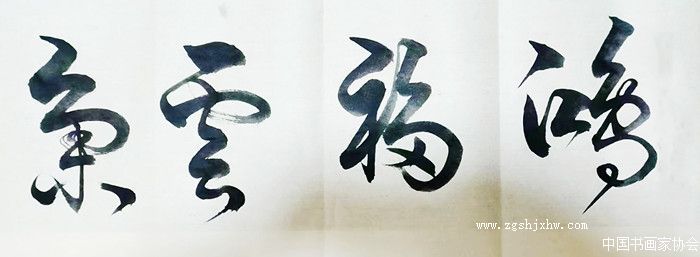 鴻福雲集
www.zgshjxhw.com
中国书画家协会